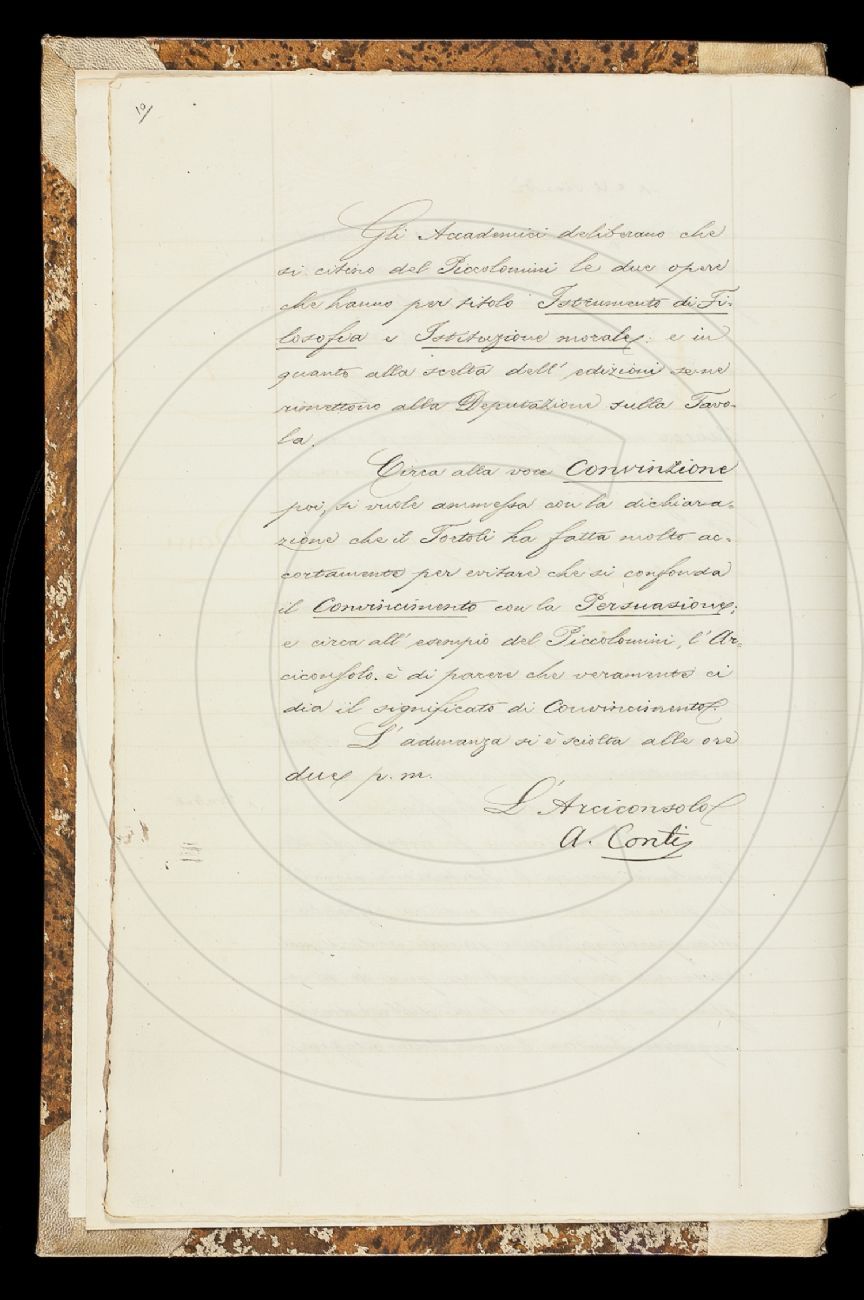 10
Gli Accademici deliberano che
si citino del Piccolomini le due opere
che hanno per titolo Istrumento di Fi-
losofia e Istituzione morale: e in
quanto alla scelta dell' edizioni se ne
rimettono alla Deputazione sulla Tavo-
la.
Circa alla voce Convinzione
poi, si vuole ammessa con la dichiara-
zione che il Tortoli ha fatta molto ac-
cortamente per evitare che si confonda
il Convincimento con la Persuasione;
e circa all' esempio del Piccolomini, l' Ar-
ciconsolo è di parere che veramente ci
dia il significato di Convincimento.
L' adunanza si è sciolta alle ore
due p. m.
L' Arciconsolo
A. Conti